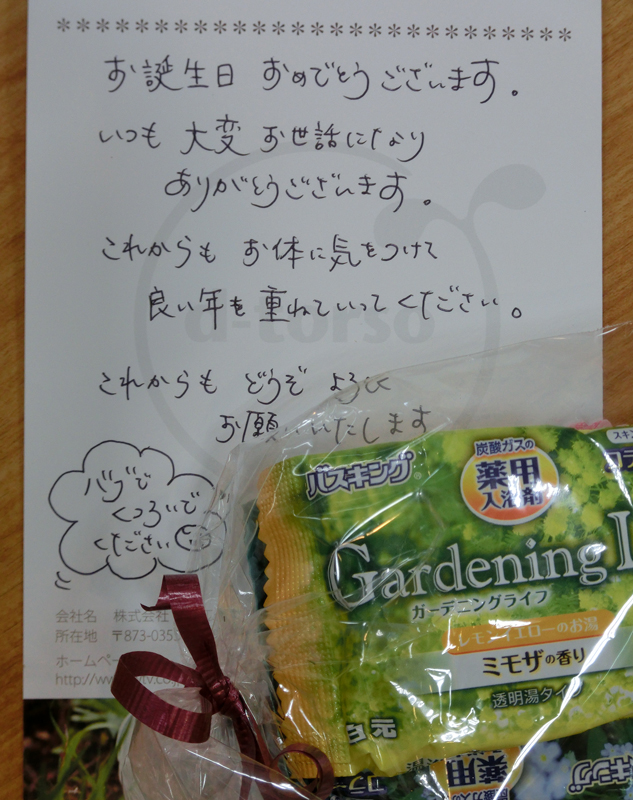 お誕生日 おめでとうございます。
いつも 大変 お世話になり
ありがとうございます。
これからも お体に気をつけて
良い年を重ねていってください。
d-torso
これからも どうぞ よろしく
お願いいたします
バブで
くつろいで
ください
会社名 株式会社
所在地 〒873-035
ホームペー
http://www.
バスキング
炭酸ガスの
薬用
入浴剤
Gardening L
ガーデニングライフ
レモンイエローのお湯
ミモザの香り
透明湯タイプ
元
薬用
バスキング